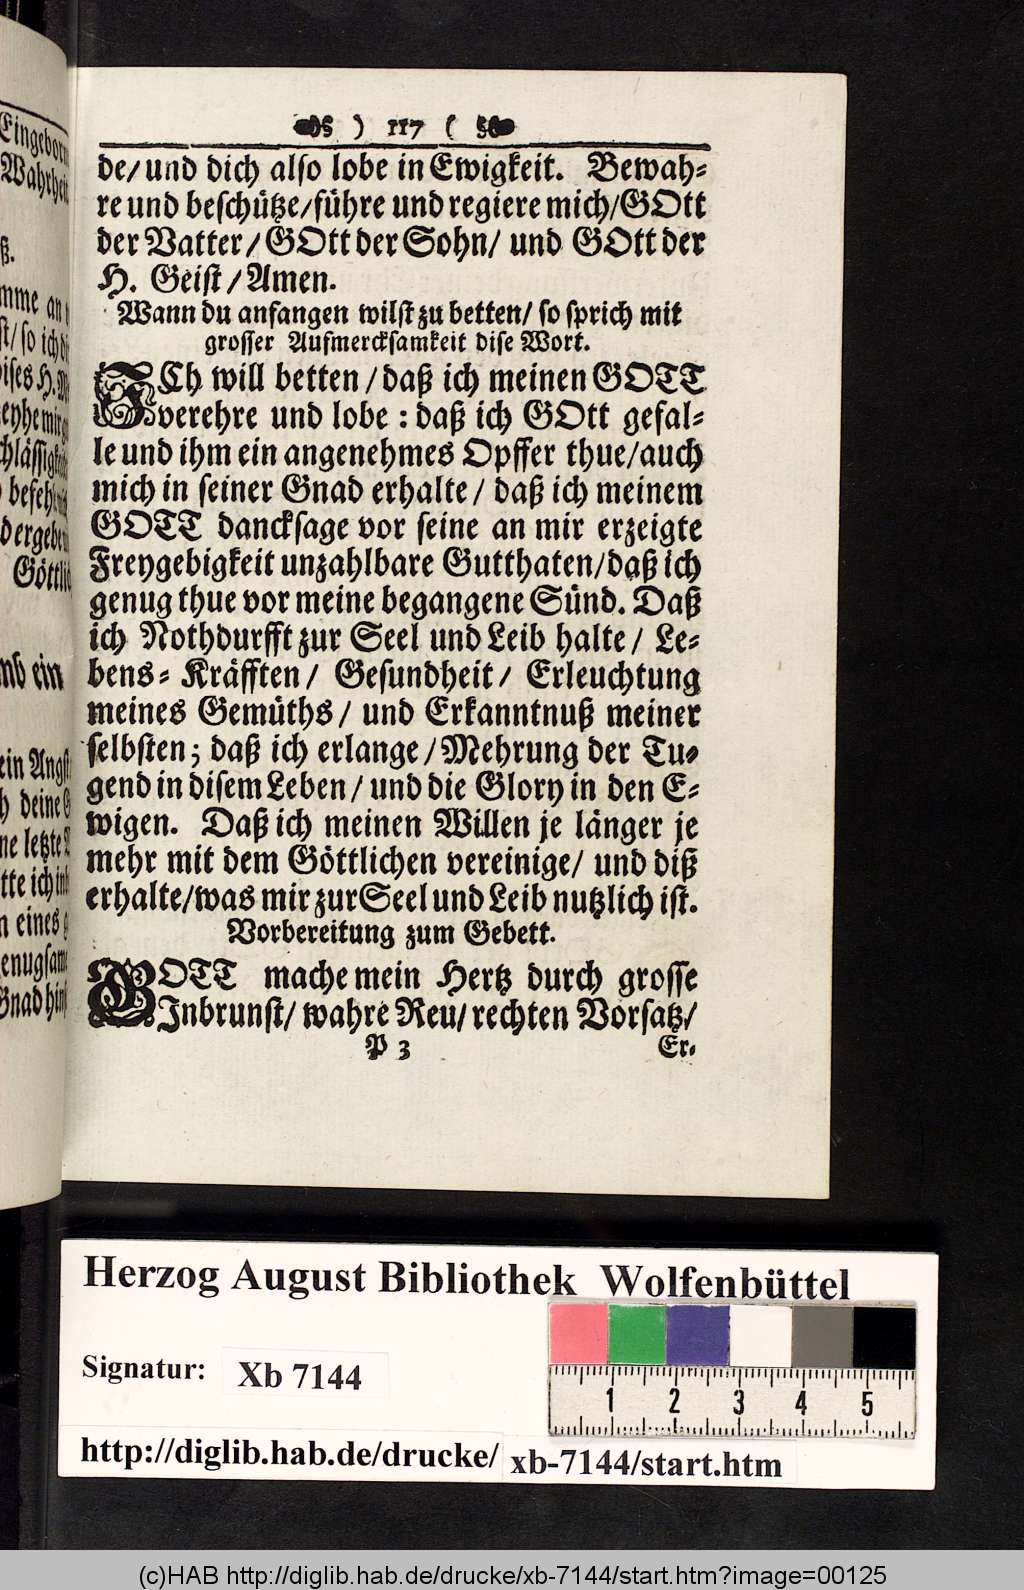 ) 117 (
de/ und dich also lobe in Ewigkeit. Bewah-
re und beschütze/ führe und regiere mich/ GOtt
der Vatter/ GOtt der Sohn/ und GOtt der
H. Geist/ Amen.
Wann du anfangen wilst zu betten/ so sprich mit
grosser Aufmercksamkeit dise Wort.
ICh will betten/ daß ich meinen GOTT
verehre und lobe: daß ich GOtt gefal-
le und ihm ein angenehmes Opffer thue/ auch
mich in seiner Gnad erhalte/ daß ich meinem
GOTT dancksage vor seine an mir erzeigte
Freygebigkeit unzahlbare Gutthaten/ daß ich
genug thue vor meine begangene Sünd. Daß
ich Nothdurfft zur Seel und Leib halte/ Le-
bens-Kräfften/ Gesundheit/ Erleuchtung
meines Gemüths/ und Erkanntnuß meiner
selbsten; daß ich erlange/ Mehrung der Tu-
gend in disem Leben/ und die Glory in den E-
wigen. Daß ich meinen Willen je länger je
mehr mit dem Göttlichen vereinige/ und diß
erhalte/ was mir zur Seel und Leib nutzlich ist.
Vorbereitung zum Gebett.
GOTT mache mein Hertz durch grosse
Inbrunst/ wahre Reu/ rechten Vorsatz/
P 3 Er-
Eingeborn
Wahrheit
ß.
mme an
st/ so ich
dises H.
eyhe mir
befeh
Göttlic
und ein
ein Angst
h deine
ne letzte
tte ich
n eines
enugsame
Gnad
Herzog August Bibliothek Wolfenbüttel
Signatur: Xb 7144
1 2 3 4 5
http://diglib.hab.de/drucke/ xb-7144/start.htm
(c)HAB http://diglib.hab.de/drucke/xb-7144/start.htm?image=00125